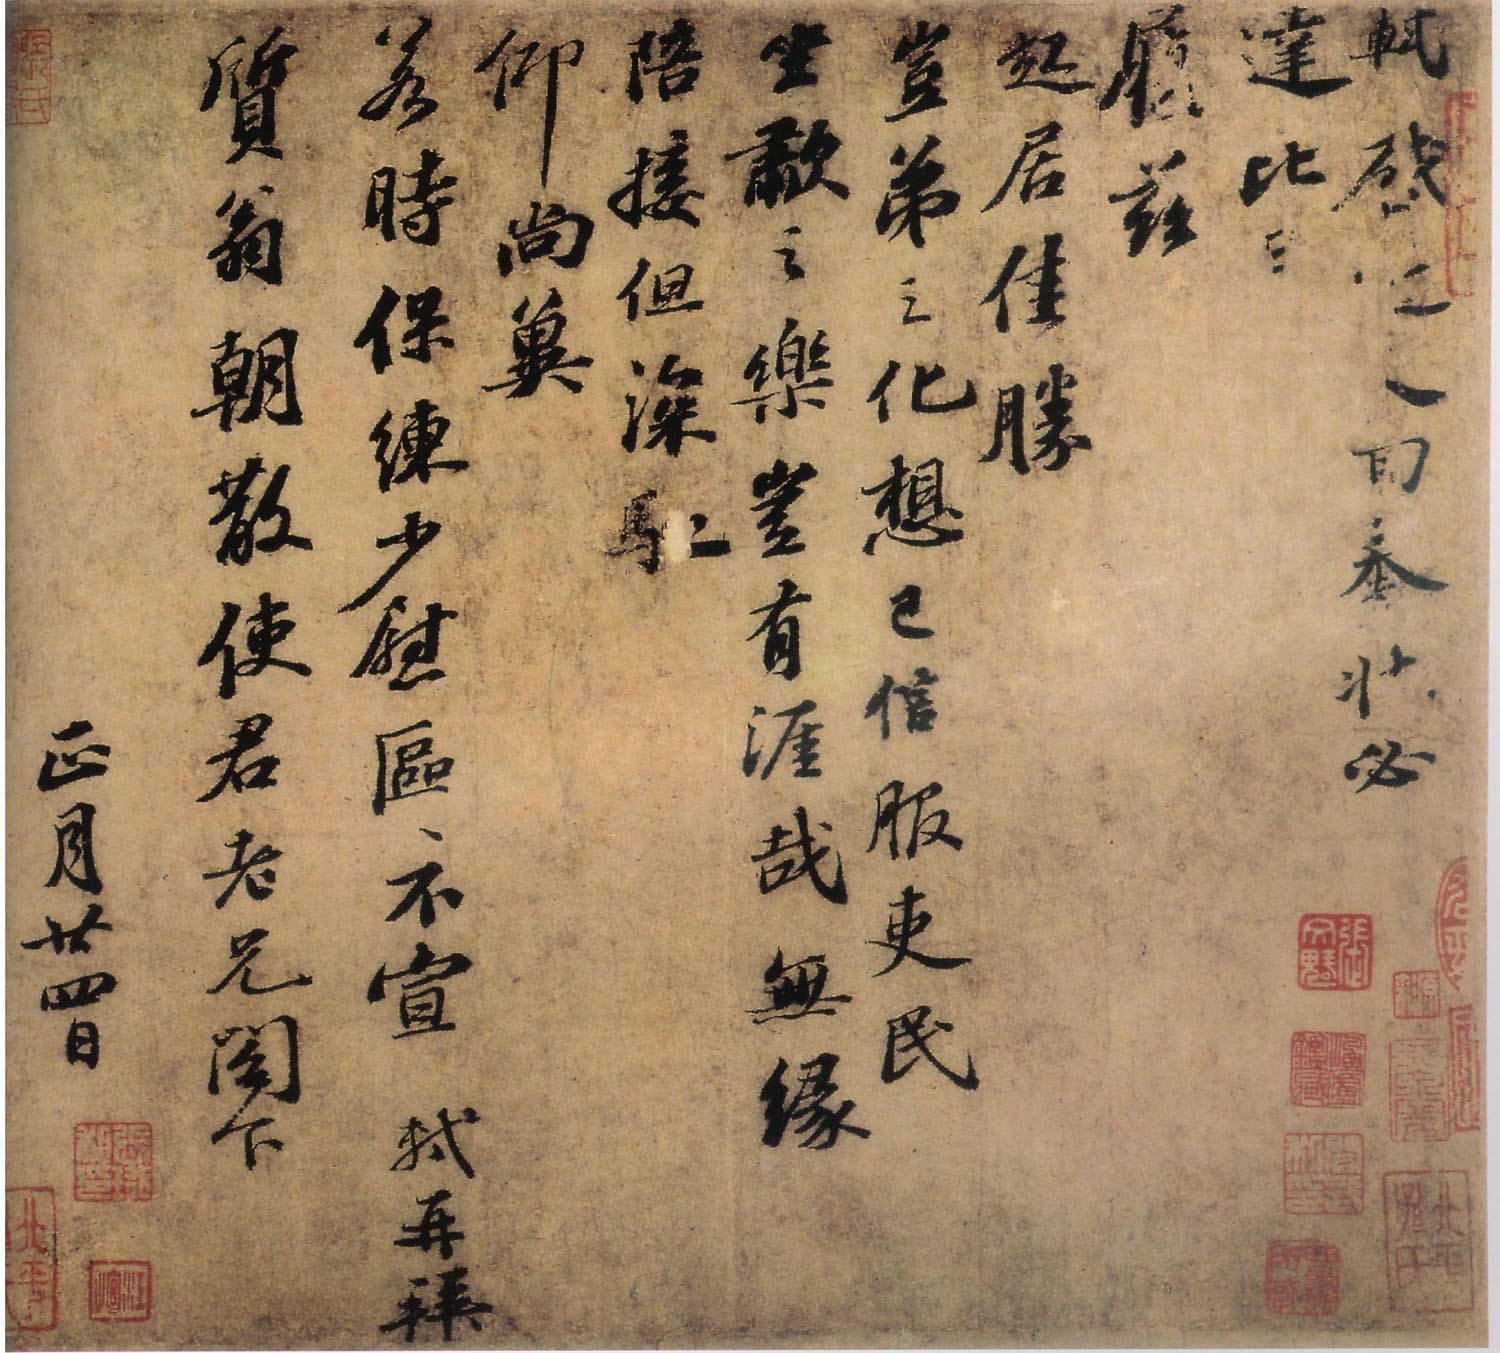 軾啟人回奉狀必
達比〻
履茲
起居佳勝
豈弟之化想已信服吏民
坐歗之樂豈有涯哉無緣
陪接但深馳
仰尚冀
若時保練少慰區〻不宣 軾再拜
質翁朝散使君老兄閣下
正月廿四日
張文魁